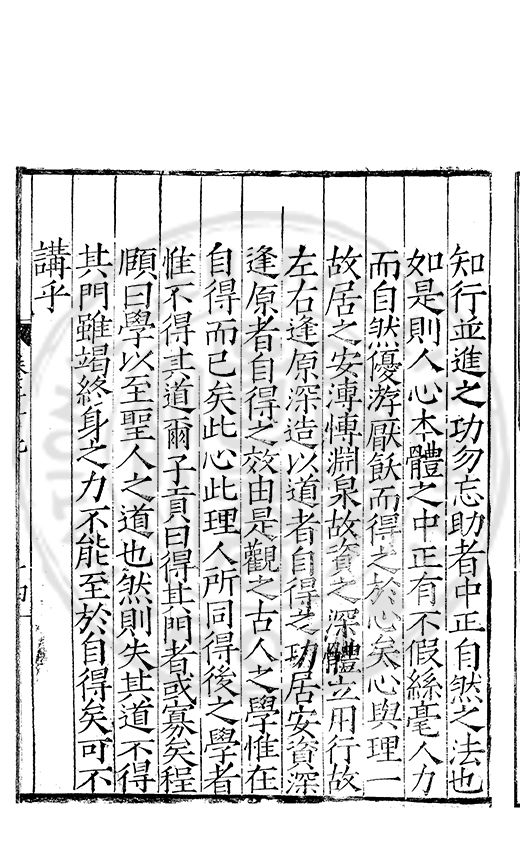 知行並進之功勿忘助者中正自然之法也
如是則人心本體之中正有不假絲毫人力
而自然優游厭飫而得之於心矣心與理一
故居之安溥慱淵泉故資之深體立用行故
左右逢原深造以道者自得之功居安資深
逢原者自得之效由是觀之古人之學惟在
自得而已矣此心此理人所同得後之學者
惟不得其道爾子貢曰得其門者或寡矣程
頤曰學以至聖人之道也然則失其道不得
其門雖竭終身之力不能至於自得矣可不
講乎